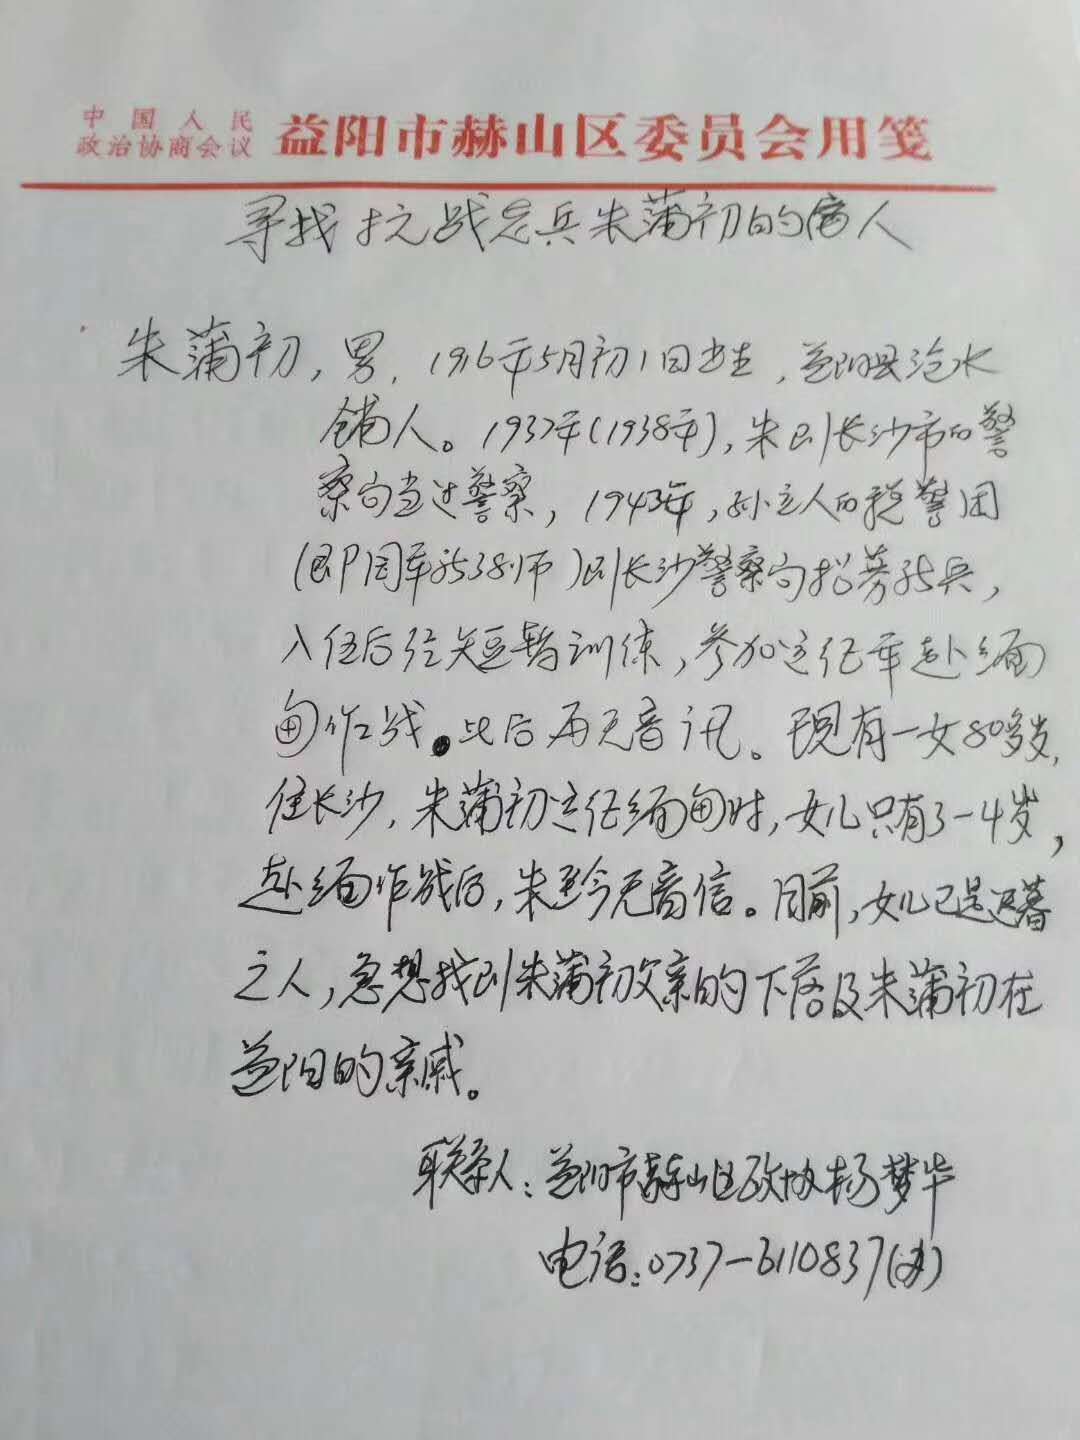 中国人民
政治协商会议 益阳市赫山区委员会用笺
寻找抗战老兵朱蒲初的家人
朱蒲初，男，1916年5月初1日出生，益阳县沧水
铺人。1937年(1938年)，朱到长沙市的警
察局当过警察，1943年，孙立人的税警团
(即国军新38师)到长沙警察局招募新兵，
入伍后经短暂训练，参加远征军赴缅
甸作战。此后再无音讯。现有一女80多岁，
住长沙，朱蒲初远征缅甸时，女儿只有3-4岁，
赴缅作战后，朱至今无音信。目前，女儿已是迟暮
之人，急想找到朱蒲初父亲的下落及朱蒲初在
益阳的亲戚。
联系人：益阳市赫山区政协杨梦华
电话：0737-3110837(办)